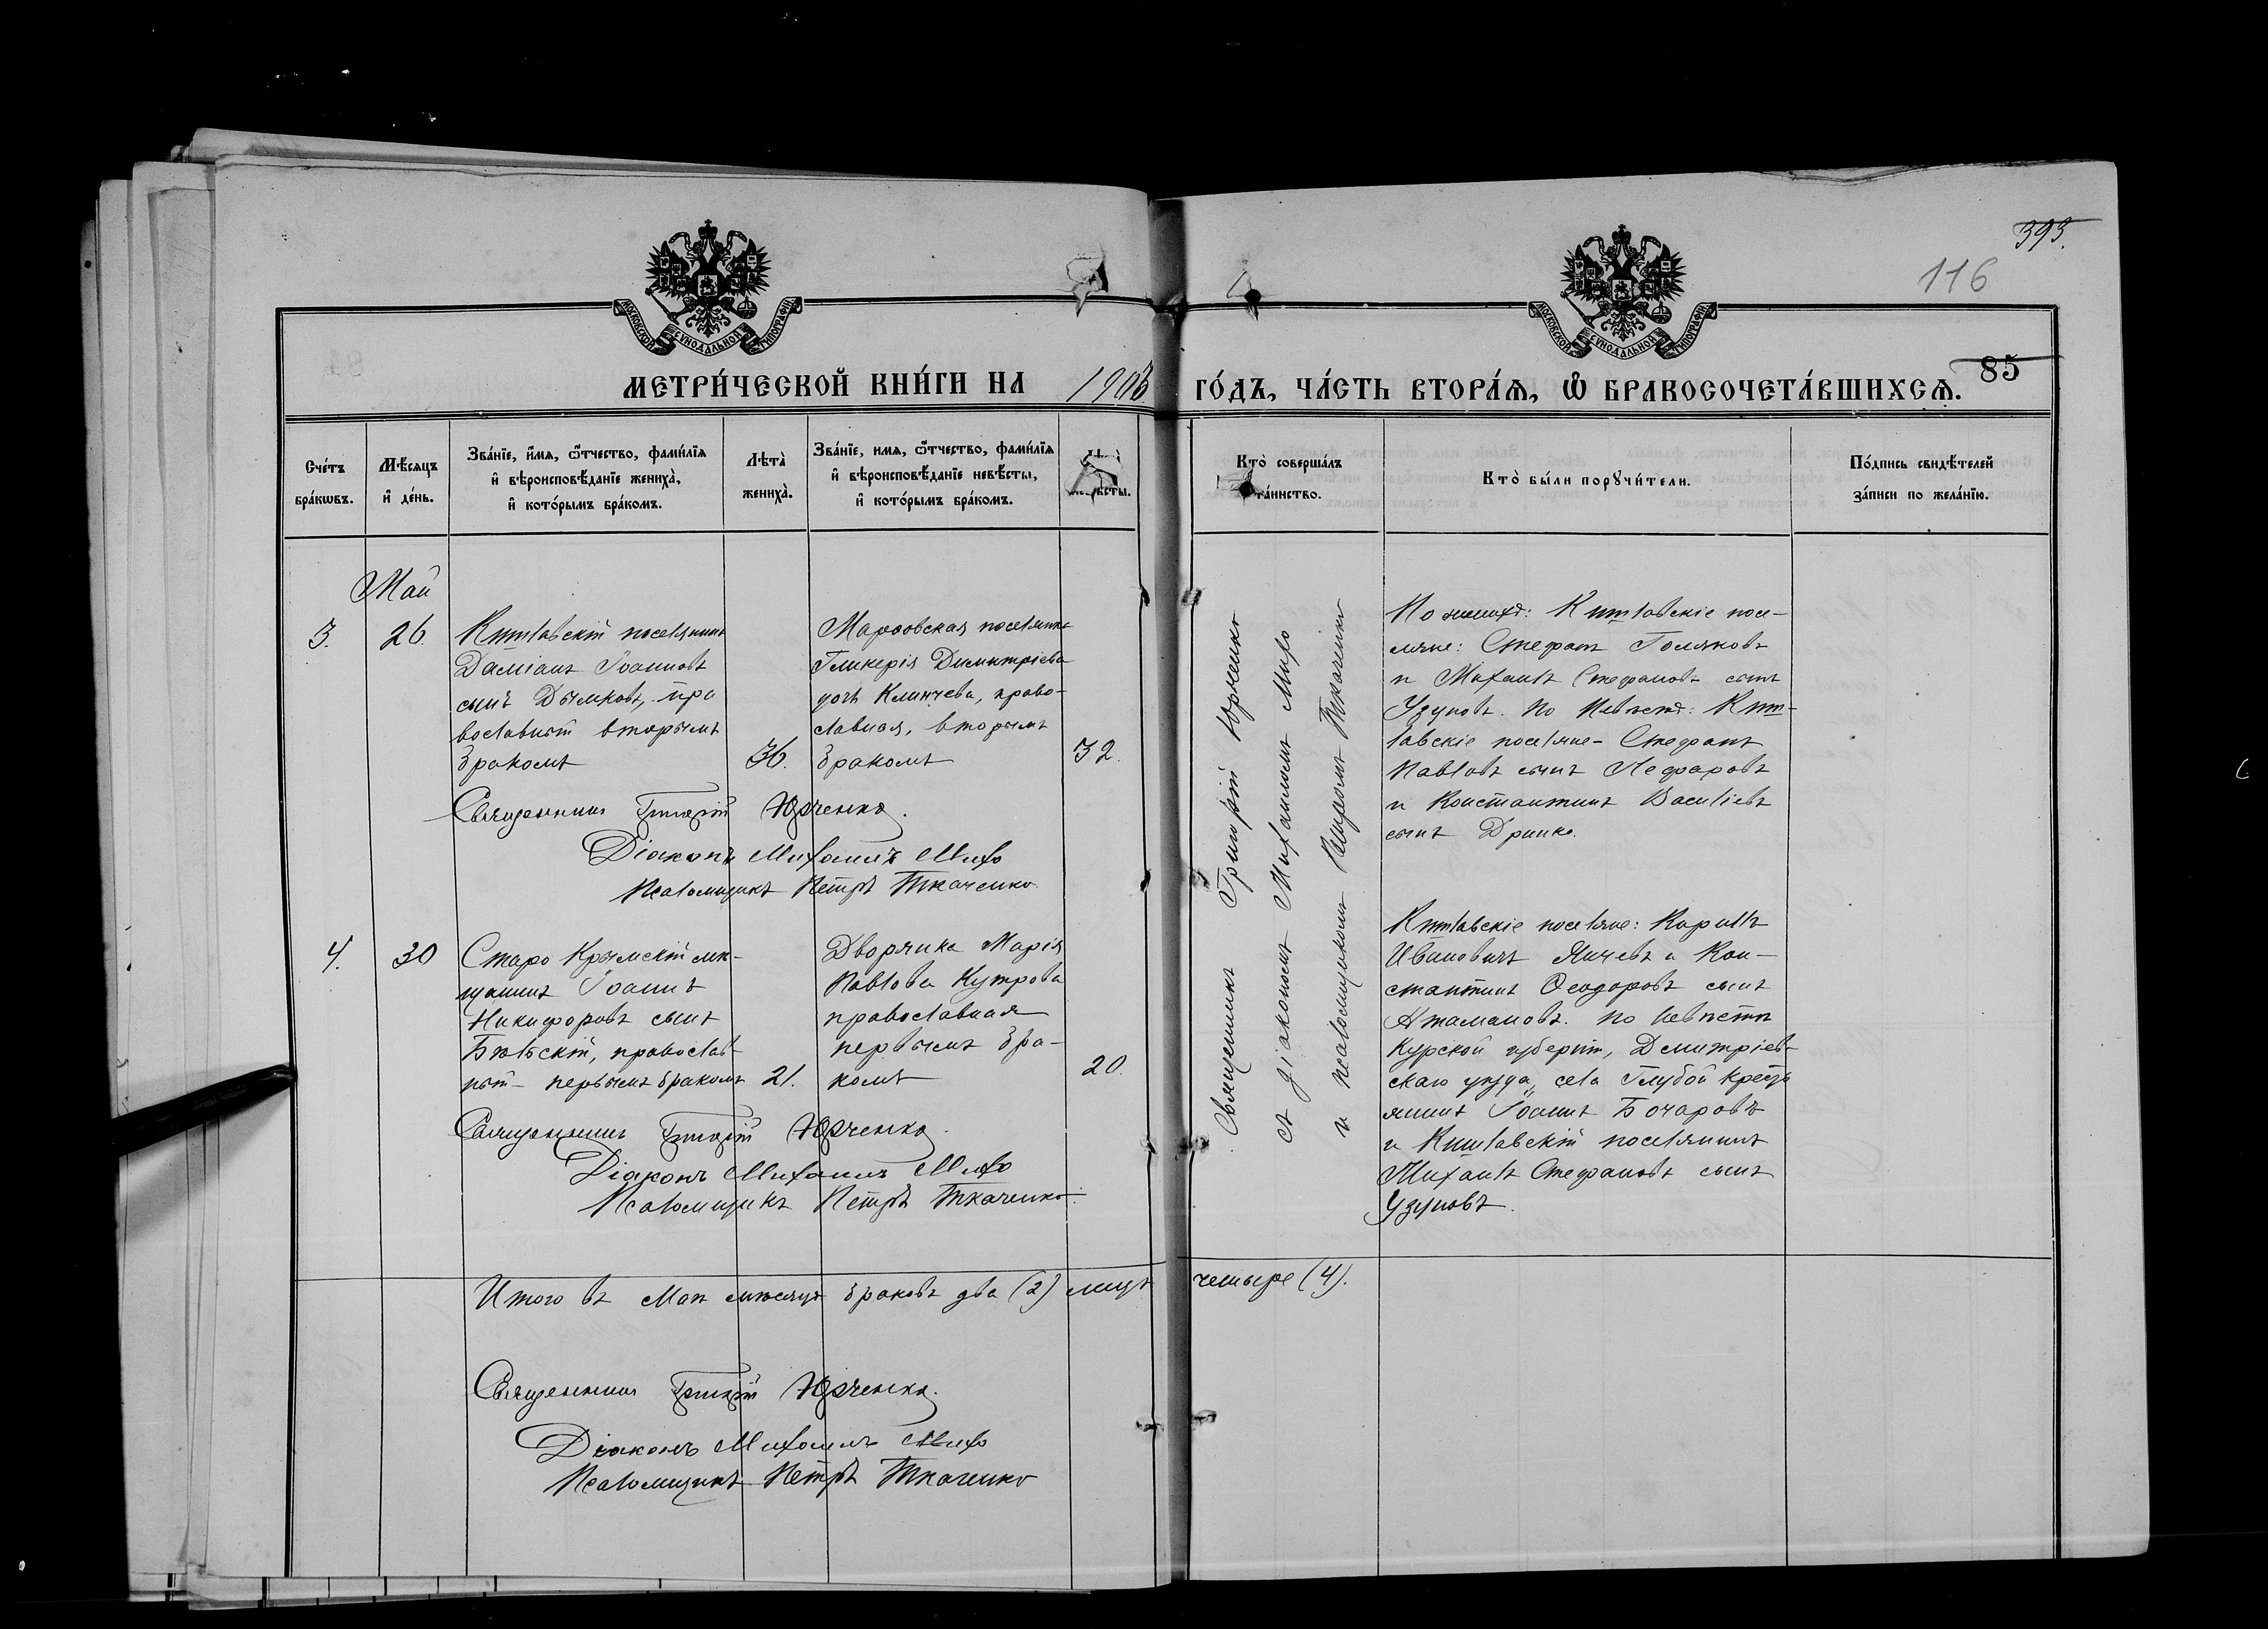 393.
116
85
МОСКОВСКОЙ СѴНОДАЛЬНОЙ ТИПОГРАФІИ
МОСКОВСКОЙ СѴНОДАЛЬНОЙ ТИПОГРАФІИ
МЕТРИ́ЧЕСКОЙ КНИ́ГИ НА 1906 ГО́ДЪ, ЧА́СТЬ ВТОРА́Ѧ, Ѽ БРАКОСОЧЕТА́ВШИХСѦ.
Сче́тъ
бра́кѡвъ.
Мѣ́сяцъ
и҆ де́нь.
Зва́нїе, и҆́мя, ѻ҆́тчество, фами́лїя
и҆ вѣроисповѣ́данїе жениха̀,
и҆ кото́рымъ бра́комъ.
Лѣта̀
жениха̀.
Зва́нїе, имя, ѻ҆́тчество, фами́лїя
и҆ вѣроисповѣ́данїе невѣ́сты,
и҆ кото́рымъ бра́комъ.
Кто̀ соверша́лъ
та́инство.
Кто̀ бы́ли порꙋчи́тели.
По́дпись свидѣ́телей
за́писи по жела́нїю.
Май
3.
26.
Киштавскій поселянинъ
Даміанъ Іоанновъ
сынъ Дымковъ, пра
вославный вторымъ
бракомъ
36.
Марфовская поселянка
Гликерія Димитріева
дочь Клинчева, право-
славная, вторымъ
бракомъ
32.
Священникъ Григорій Юрченко
съ діакономъ Михаиломъ Михо
и псаломщикомъ Петромъ Ткаченко
По женихѣ: Киштавскіе посе-
ляне: Стефанъ Голяковъ
и Михаилъ Стефановъ сынъ
Узуновъ. По невѣстѣ: Киш-
тавскіе поселяне - Стефанъ
Павловъ сынъ
и Константинъ Васильевъ
сынъ Дринко.
Священникъ Григорій Юрченко.
Діаконъ Михаилъ Михо
Псаломщикъ Петръ Ткаченко
4.
30
Старо Крымскій мѣ-
щанинъ Іоаннъ
Никифоровъ сынъ
Бѣльскій, православ-
ный - первымъ бракомъ
21.
Дворянка Марія
Павлова Кутрова
православная
первымъ бра-
комъ
20.
Киштавскіе поселяне: Кириллъ
Ивановичъ Яичевъ и Кон-
стантинъ Ѳеодоровъ сынъ
Атамановъ. по невѣстѣ
Курской губерніи, Дмитріев-
скаго уѣзда, села Глубой крестъ
янинъ Іоаннъ Бочаровъ
и Киштавскій поселянинъ
Михаилъ Стефановъ сынъ
Узуновъ.
Священникъ Григорій Юрченко.
Діаконъ Михаилъ Михо
Псаломщикъ Петръ Ткаченко.
Итого въ Маѣ мѣсяцѣ браковъ два (2) лицъ четыре (4).
Священникъ Григорій Юрченко.
Діаконъ Михаилъ Михо
Псаломщикъ Петръ Ткаченко